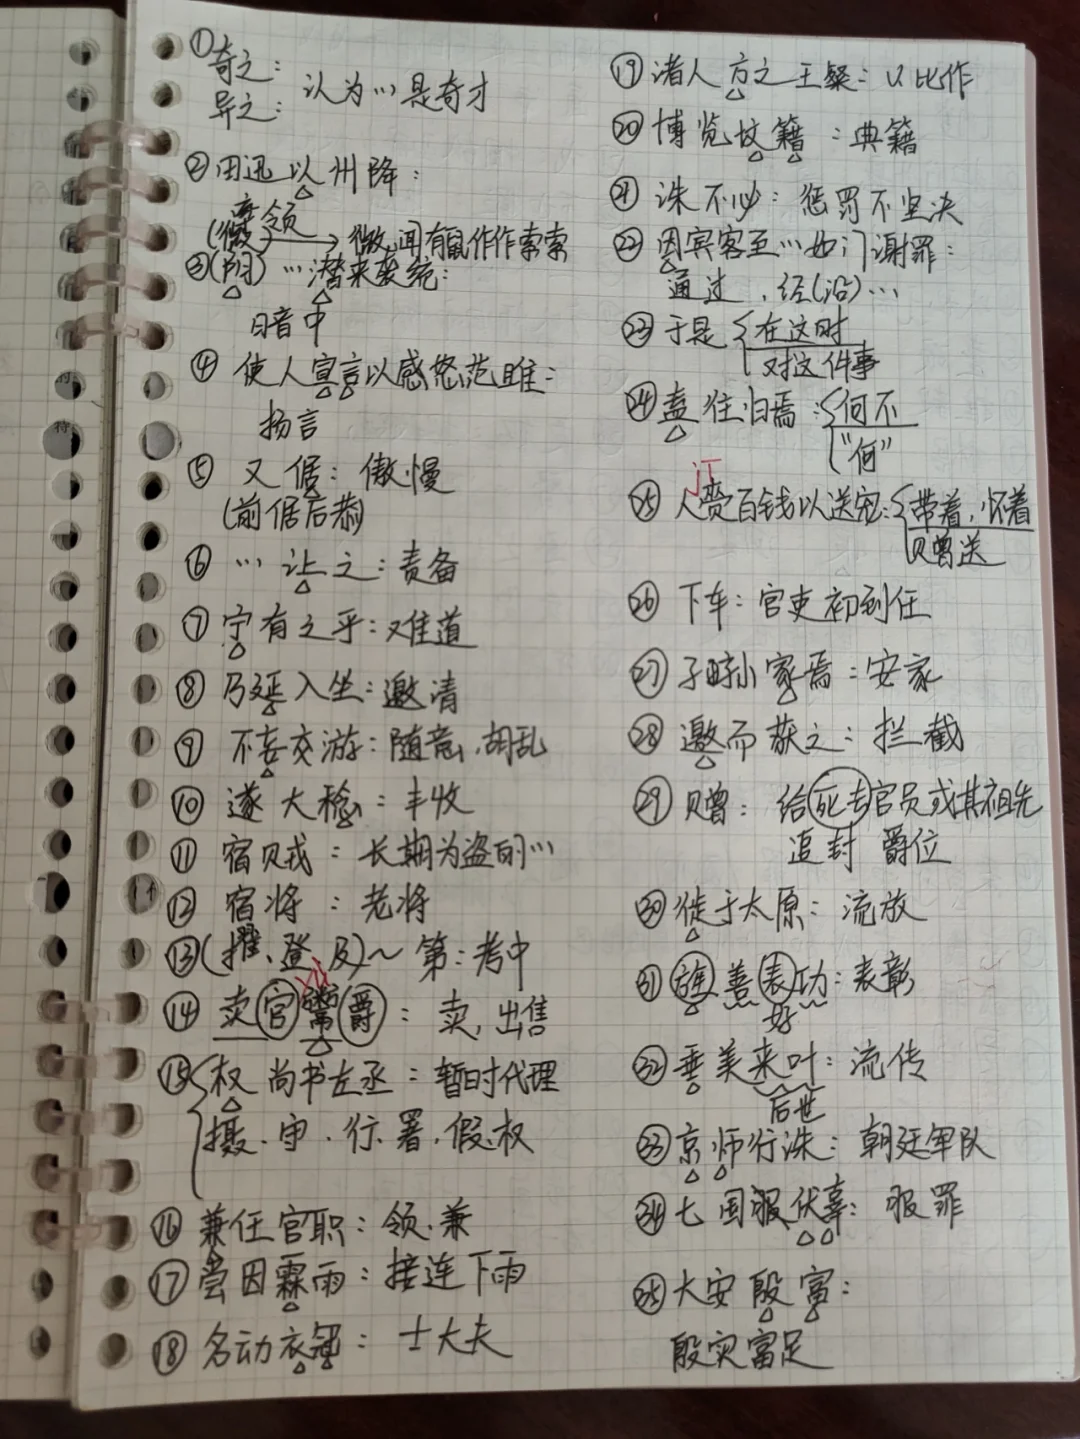 ①奇之：
异之： 认为…是奇才
②田迅以州降：
率领
(微) → 微闻有鼠作作索索
③(阴)…潜来袭统：
暗中
④使人宣言以感怒范雎：
扬言
⑤又倨：傲慢
(前倨后恭)
⑥…让之：责备
⑦宁有之乎：难道
⑧乃延入坐：邀请
⑨不妄交游：随意、胡乱
⑩遂大稔：丰收
⑪宿贼：长期为盗的…
⑫宿将：老将
⑬(擢、登、及)～第：考中
yù
⑭卖官鬻爵：卖，出售
⑮权尚书左丞：暂时代理
摄、守、行、署、假、权
⑯兼任官职：领、兼
⑰尝因霖雨：接连下雨
⑱名动衣冠：士大夫
⑲渚人方之王粲：以比作
⑳博览坟籍：典籍
㉑诛不必：惩罚不坚决
㉒因宾客至…如门谢罪：
通过，经(沿)…
㉓于是 在这时
对这件事
㉔盍往归焉：何不
"何"
jī
㉕人赍百钱以送宽：带着，怀着
赠送
㉖下车：官吏初到任
㉗子时孙家焉：安家
㉘邀而获之：拦截
㉙赠：给死去官员或其祖先
追封 爵位
㉚徙于太原：流放
㉛旌善表功：表彰
好
㉜垂美来叶：流传
后世
㉝京师行诛：朝廷军队
㉞七国服伏辜：服罪
㉟大安殷富：
殷实富足